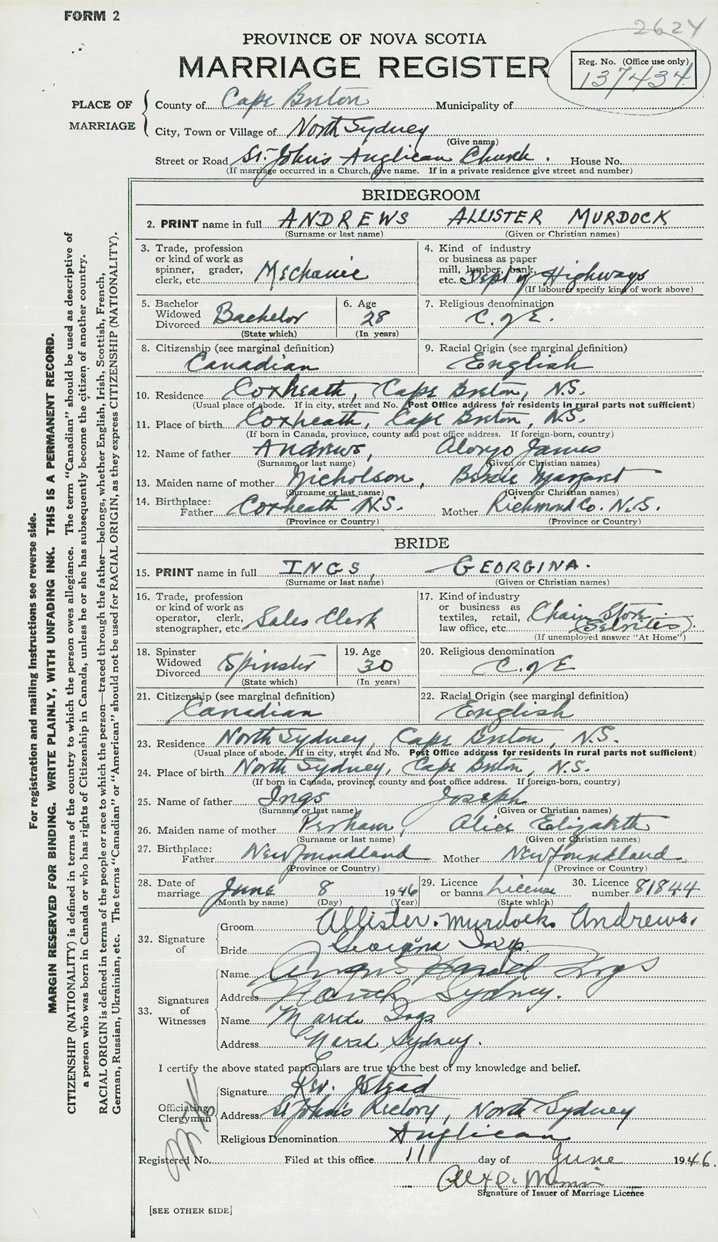 FORM 2
2624
PROVINCE OF NOVA SCOTIA
MARRIAGE REGISTER
Reg. No. (Office use only)
137434
PLACE OF MARRIAGE
County of Cape Breton Municipality of
City, Town or Village of North Sydney
(Give name)
Street or Road St. John's Anglican Church. House No.
(If marriage occurred in a Church, give name. If in a private residence give street and number)
BRIDEGROOM
2. PRINT name in full ANDREWS ALLISTER MURDOCK
(Surname or last name) (Given or Christian names)
3. Trade, profession or kind of work as spinner, grader, clerk, etc. Mechanic
4. Kind of industry or business as paper mill, lumber, bank, etc. Dept of Highways
(If labourer specify kind of work above)
5. Bachelor Widowed Divorced Bachelor
(State which)
6. Age 28
(In years)
7. Religious denomination
C. of E.
8. Citizenship (see marginal definition)
Canadian
9. Racial Origin (see marginal definition)
English
10. Residence Coxheath, Cape Breton, N.S.
(Usual place of abode. If in city, street and No. Post Office address for residents in rural parts not sufficient)
11. Place of birth Coxheath, Cape Breton, N.S.
(If born in Canada, province, county and post office address. If foreign-born, country)
12. Name of father Andrews, Alonzo James
(Surname or last name) (Given or Christian names)
13. Maiden name of mother Nicholson, Margaret
(Surname or last name) (Given or Christian names)
14. Birthplace: Father Coxheath N.S. Mother Richmond Co. N.S.
(Province or Country) (Province or Country)
BRIDE
15. PRINT name in full INGS, GEORGINA.
(Surname or last name) (Given or Christian names)
16. Trade, profession or kind of work as operator, clerk, stenographer, etc. Sales Clerk
17. Kind of industry or business as textiles, retail, law office, etc. Chain Store
(If unemployed answer "At Home")
18. Spinster Widowed Divorced Spinster
(State which)
19. Age 30
(In years)
20. Religious denomination
C. of E
21. Citizenship (see marginal definition)
Canadian
22. Racial Origin (see marginal definition)
English
23. Residence North Sydney, Cape Breton, N.S.
(Usual place of abode. If in city, street and No. Post Office address for residents in rural parts not sufficient)
24. Place of birth North Sydney, Cape Breton, N.S.
(If born in Canada, province, county and post office address. If foreign-born, country)
25. Name of father Ings Joseph
(Surname or last name) (Given or Christian names)
26. Maiden name of mother Alice Elizabeth
(Surname or last name) (Given or Christian names)
27. Birthplace: Father Newfoundland Mother Newfoundland
(Province or Country) (Province or Country)
28. Date of marriage June 8 1946
(Month by name) (Day) (Year)
29. Licence or banns License
(State which)
30. Licence number 81844
32. Signature of
Groom Allister. Murdock Andrews.
Bride Georgina Ings
33. Signatures of Witnesses
Name Angus Ings
Address North Sydney.
Name Ings
Address North Sydney.
I certify the above stated particulars are true to the best of my knowledge and belief.
Officiating Clergyman
Signature Rev.
Address St John's Rectory, North Sydney
Religious Denomination Anglican
Registered No. Filed at this office 11 day of June 1946.
Signature of Issuer of Marriage Licence
[SEE OTHER SIDE]
For registration and mailing instructions see reverse side.
MARGIN RESERVED FOR BINDING. WRITE PLAINLY, WITH UNFADING INK. THIS IS A PERMANENT RECORD.
CITIZENSHIP (NATIONALITY) is defined in terms of the country to which the person owes allegiance. The term "Canadian" should be used as descriptive of
a person who was born in Canada or who has rights of Citizenship in Canada, unless he or she has subsequently become the citizen of another country.
RACIAL ORIGIN is defined in terms of the people or race to which the person—traced through the father—belongs, whether English, Irish, Scottish, French,
German, Russian, Ukrainian, etc. The terms "Canadian" or "American" should not be used for RACIAL ORIGIN, as they express CITIZENSHIP (NATIONALITY).